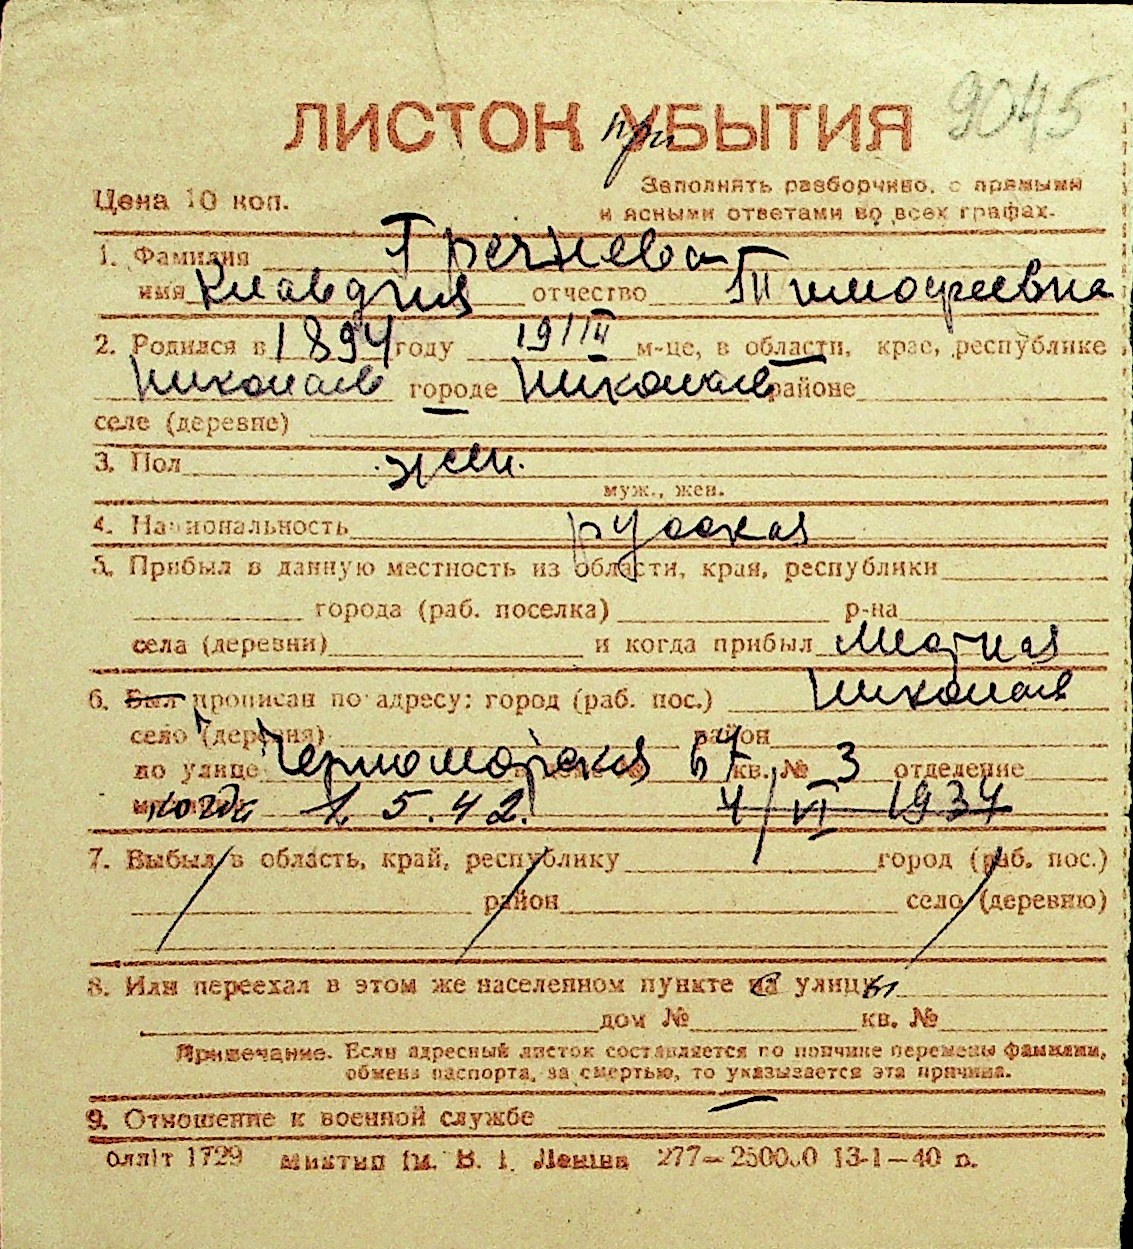 9045
ЛИСТОК при УБЫТИЯ
Цена 10 коп.
Заполнять разборчиво, с прямыми
и ясными ответами во всех графах.
1. Фамилия Гречнева
имя Клавдия отчество Тимофеевна
2. Родился в 1894 году 19/III м-це, в области, крае, республике
Николаев городе Николаев районе
селе (деревне)
3. Пол жен.
муж., жен.
4. Национальность русская
5. Прибыл в данную местность из области, края, республики
города (раб. поселка) р-на
села (деревни) и когда прибыл Местная
6. Был прописан по адресу: город (раб. пос.) Николаев
село (деревня) район
по улице Черноморская 67 кв. № 3 отделение
когда 1.5.42. 4/VI 1934
7. Выбыл в область, край, республику город (раб. пос.)
район село (деревню)
8. Или переехал в этом же населенном пункте с улицы
дом № кв. №
Примечание. Если адресный листок составляется по причине перемены фамилии,
обмена паспорта, за смертью, то указывается эта причина.
9. Отношение к военной службе
Оллiт 1729 Миктип iм. В. I. Ленiна 277—250000 13-1—40 р.